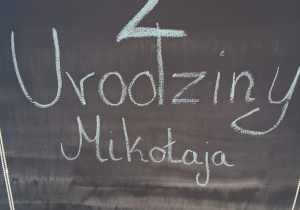 2
Urodziny
Mikołaja